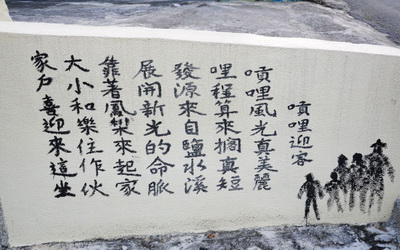 嗊哩迎客
嗊哩風光真美麗
哩程算來擱真短
發源來自鹽水溪
展開新光的命脈
靠著鳳梨來起家
大小和樂住作伙
家户喜迎來這坐